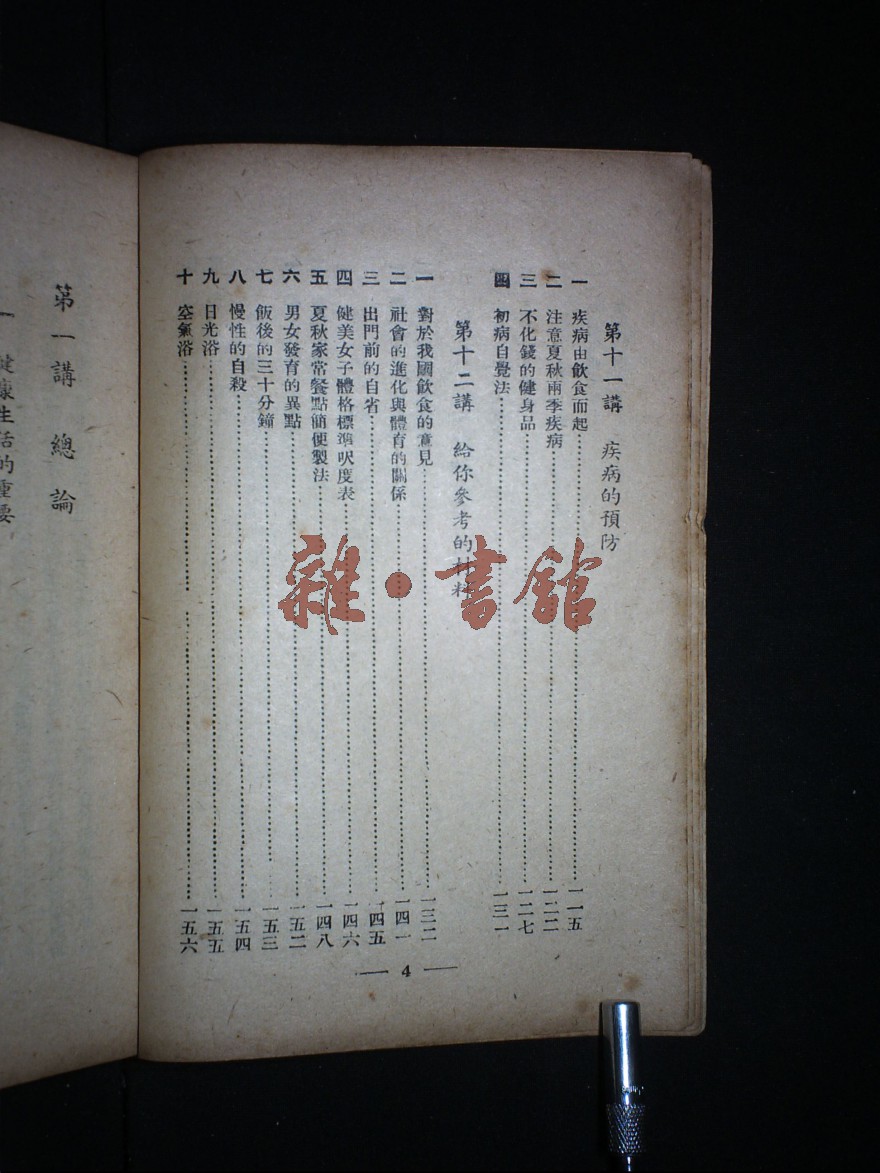 第十一講 疾病的預防
一 疾病由飲食而起 一一五
二 注意夏秋兩季疾病 一二二
三 不化錢的健身品 一二七
四 初病自覺法 一三一
第十二講 給你參考的材料
一 對於我國飲食的意見 一三二
二 社會的進化與體育的關係 一四一
三 出門前的自省 一四五
四 健美女子體格標準呎度表 一四六
五 夏秋家常餐點簡便製法 一四八
六 男女發育的異點 一五二
七 飯後的三十分鐘 一五三
八 慢性的自殺 一五四
九 日光浴 一五五
十 空氣浴 一五六
— 4 —
第一講 總論
一 健康生活的重要
雜·書館